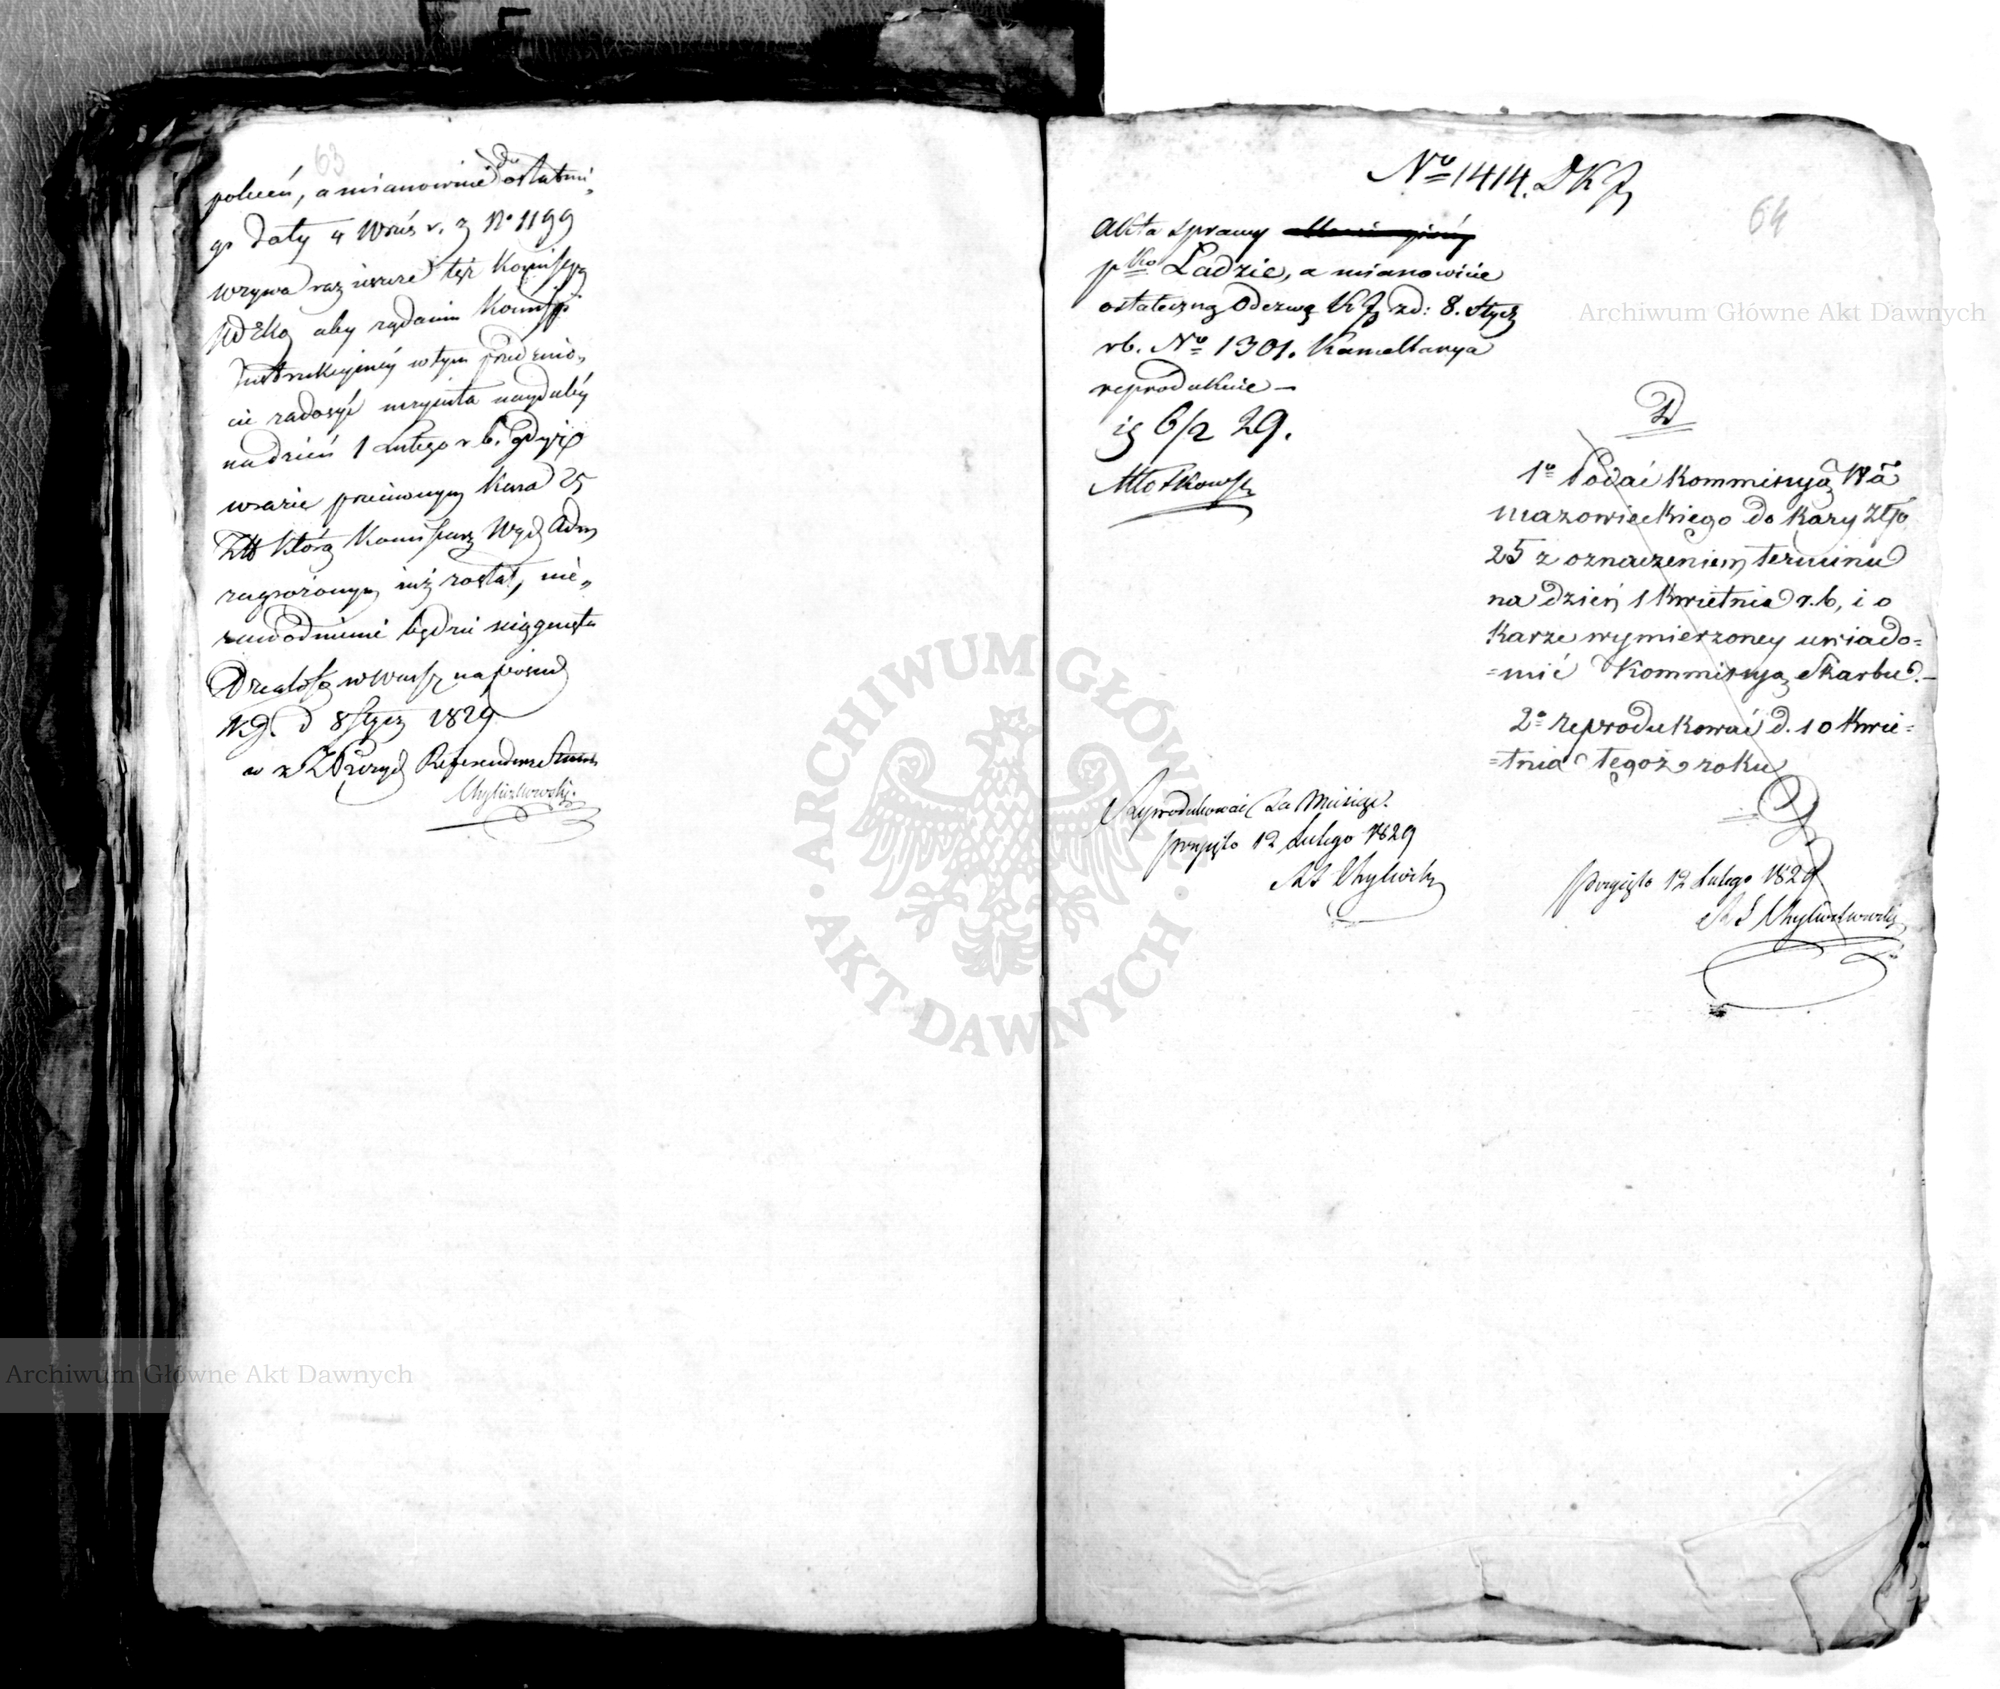 63
poleceń, a mianowicie do ostatnie,,
go Daty 4 Wrześ r. z N° 1199
wzywa raz jeszcze też Kommissyą
Wdzką aby żądaniu Kommissyi
Instrukcyjnéj w tym przedmio,,
cie zadosyć uczyniła naydaléy
na dzień 1 Lutego r b. gdyż
w razie przeciwnym Kara 25
Złt którą Kommissarz Wydz Adm
zagrożonym już został, nie,,
zawodnie będzie ściągnięta
Działo się w Warsz na posied
d 8 Stycz 1829
w z Referendarz Stanu
Chyliczkowski
N° 1414. D K J
64
Akta sprawy
pko Ładzie, a mianowicie
ostateczną Odezwę K J z d: 8. Stycz
rb. N° 1301. Kancellarya
reprodukuie —
6/2 29.
D
1° Podać Kommissyą Wa
Mazowieckiego do kary Złp
25 z oznaczeniem terminu
na dzień 1 Kwietnia r. b, i o
karze wymierzoney uwiado=
=mić Kommissyą Skarbu. —
2° reprodukować d. 10 Kwie=
=tnia tegoż roku
Reprodukować za Miesiąc.
przyjęto 12 Lutego 1829
R S Chyliczk
przyjęto 12 Lutego 1829
R S Chyliczkowski
Archiwum Główne Akt Dawnych
Archiwum Główne Akt Dawnych
ARCHIWUM GŁÓWNE · AKT DAWNYCH ·